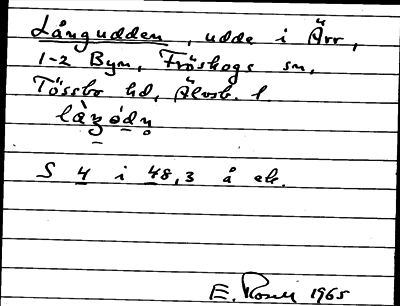 Långudden, udde i Ärr,
1-2 Byn, Fröskogs sn,
Tössbo hd, Älvsb. l.
S 4 i 48,3 å ek.
E. 1965